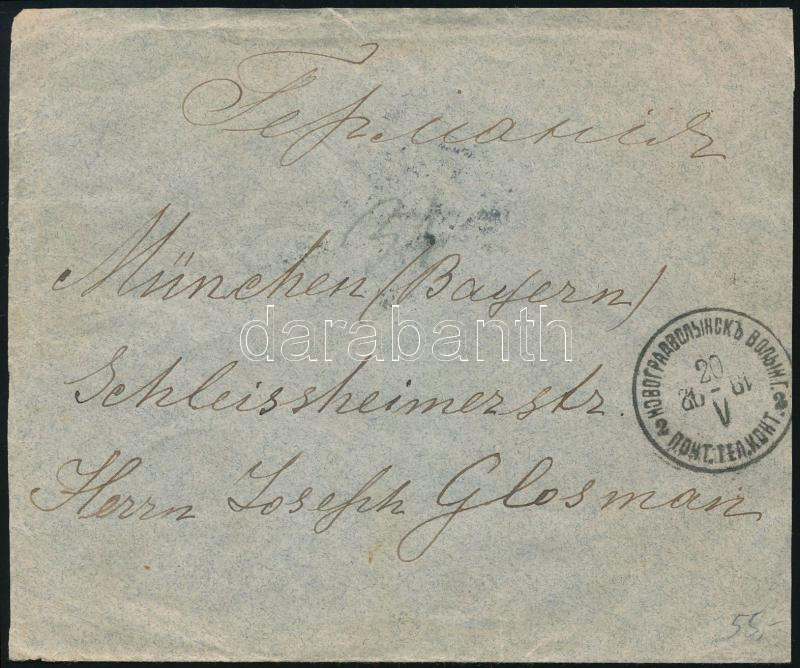 Германія
München (Bayern)
darabanth
Schleissheimerstr.
НОВОГРАДВОЛЫНСКЪ ВОЛЫН.Г.
20
V
ПОЧТ.ТЕЛ.КОНТ.
Herrn Joseph Glosman